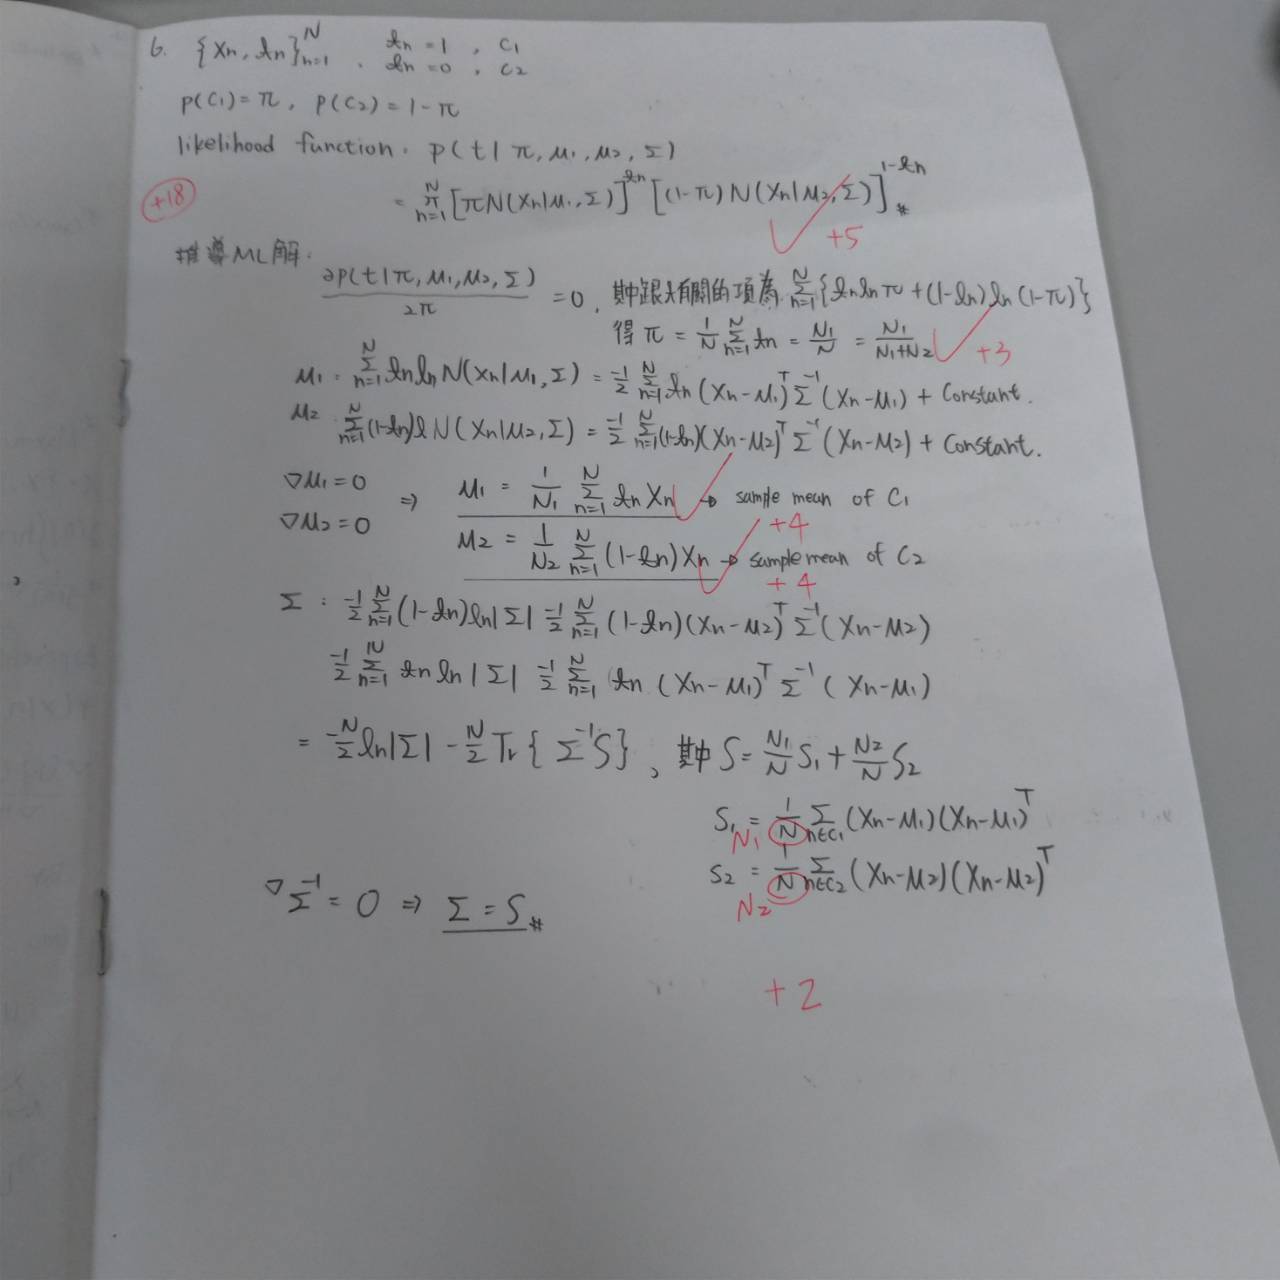 6. {Xn, tn}_{n=1}^{N} , tn = 1 , C1
tn = 0 , C2
p(C1) = π , p(C2) = 1-π
likelihood function . p(t|π, μ1, μ2, Σ)
+18
= ∏_{n=1}^{N} [πN(Xn|μ1, Σ)]^{tn} [(1-π) N(Xn|μ2, Σ)]^{1-tn} #
+5
推導ML解 :
∂p(t|π, μ1, μ2, Σ) / ∂π = 0 , 其中跟π有關的項為 Σ_{n=1}^{N} {tn ln π + (1-tn) ln (1-π)}
得 π = 1/N Σ_{n=1}^{N} tn = N1/N = N1/(N1+N2)
+3
μ1 : Σ_{n=1}^{N} tn ln N(Xn|μ1, Σ) = -1/2 Σ_{n=1}^{N} tn (Xn-μ1)^T Σ^{-1} (Xn-μ1) + Constant.
μ2 Σ_{n=1}^{N} (1-tn) l N(Xn|μ2, Σ) = -1/2 Σ_{n=1}^{N} (1-tn)(Xn-μ2)^T Σ^{-1} (Xn-μ2) + Constant.
∇μ1 = 0 ⇒ μ1 = 1/N1 Σ_{n=1}^{N} tn Xn → sample mean of C1
+4
∇μ2 = 0 μ2 = 1/N2 Σ_{n=1}^{N} (1-tn) Xn → sample mean of C2
+4
Σ : -1/2 Σ_{n=1}^{N} (1-tn) ln|Σ| -1/2 Σ_{n=1}^{N} (1-tn)(Xn-μ2)^T Σ^{-1} (Xn-μ2)
-1/2 Σ_{n=1}^{N} tn ln|Σ| -1/2 Σ_{n=1}^{N} tn (Xn-μ1)^T Σ^{-1} (Xn-μ1)
= -N/2 ln|Σ| - N/2 Tr{Σ^{-1}S} , 其中 S = N1/N S1 + N2/N S2
S1 = 1/N Σ_{n∈C1} (Xn-μ1)(Xn-μ1)^T
N1
S2 = 1/N Σ_{n∈C2} (Xn-μ2)(Xn-μ2)^T
N2
∇Σ^{-1} = 0 ⇒ Σ = S #
+2